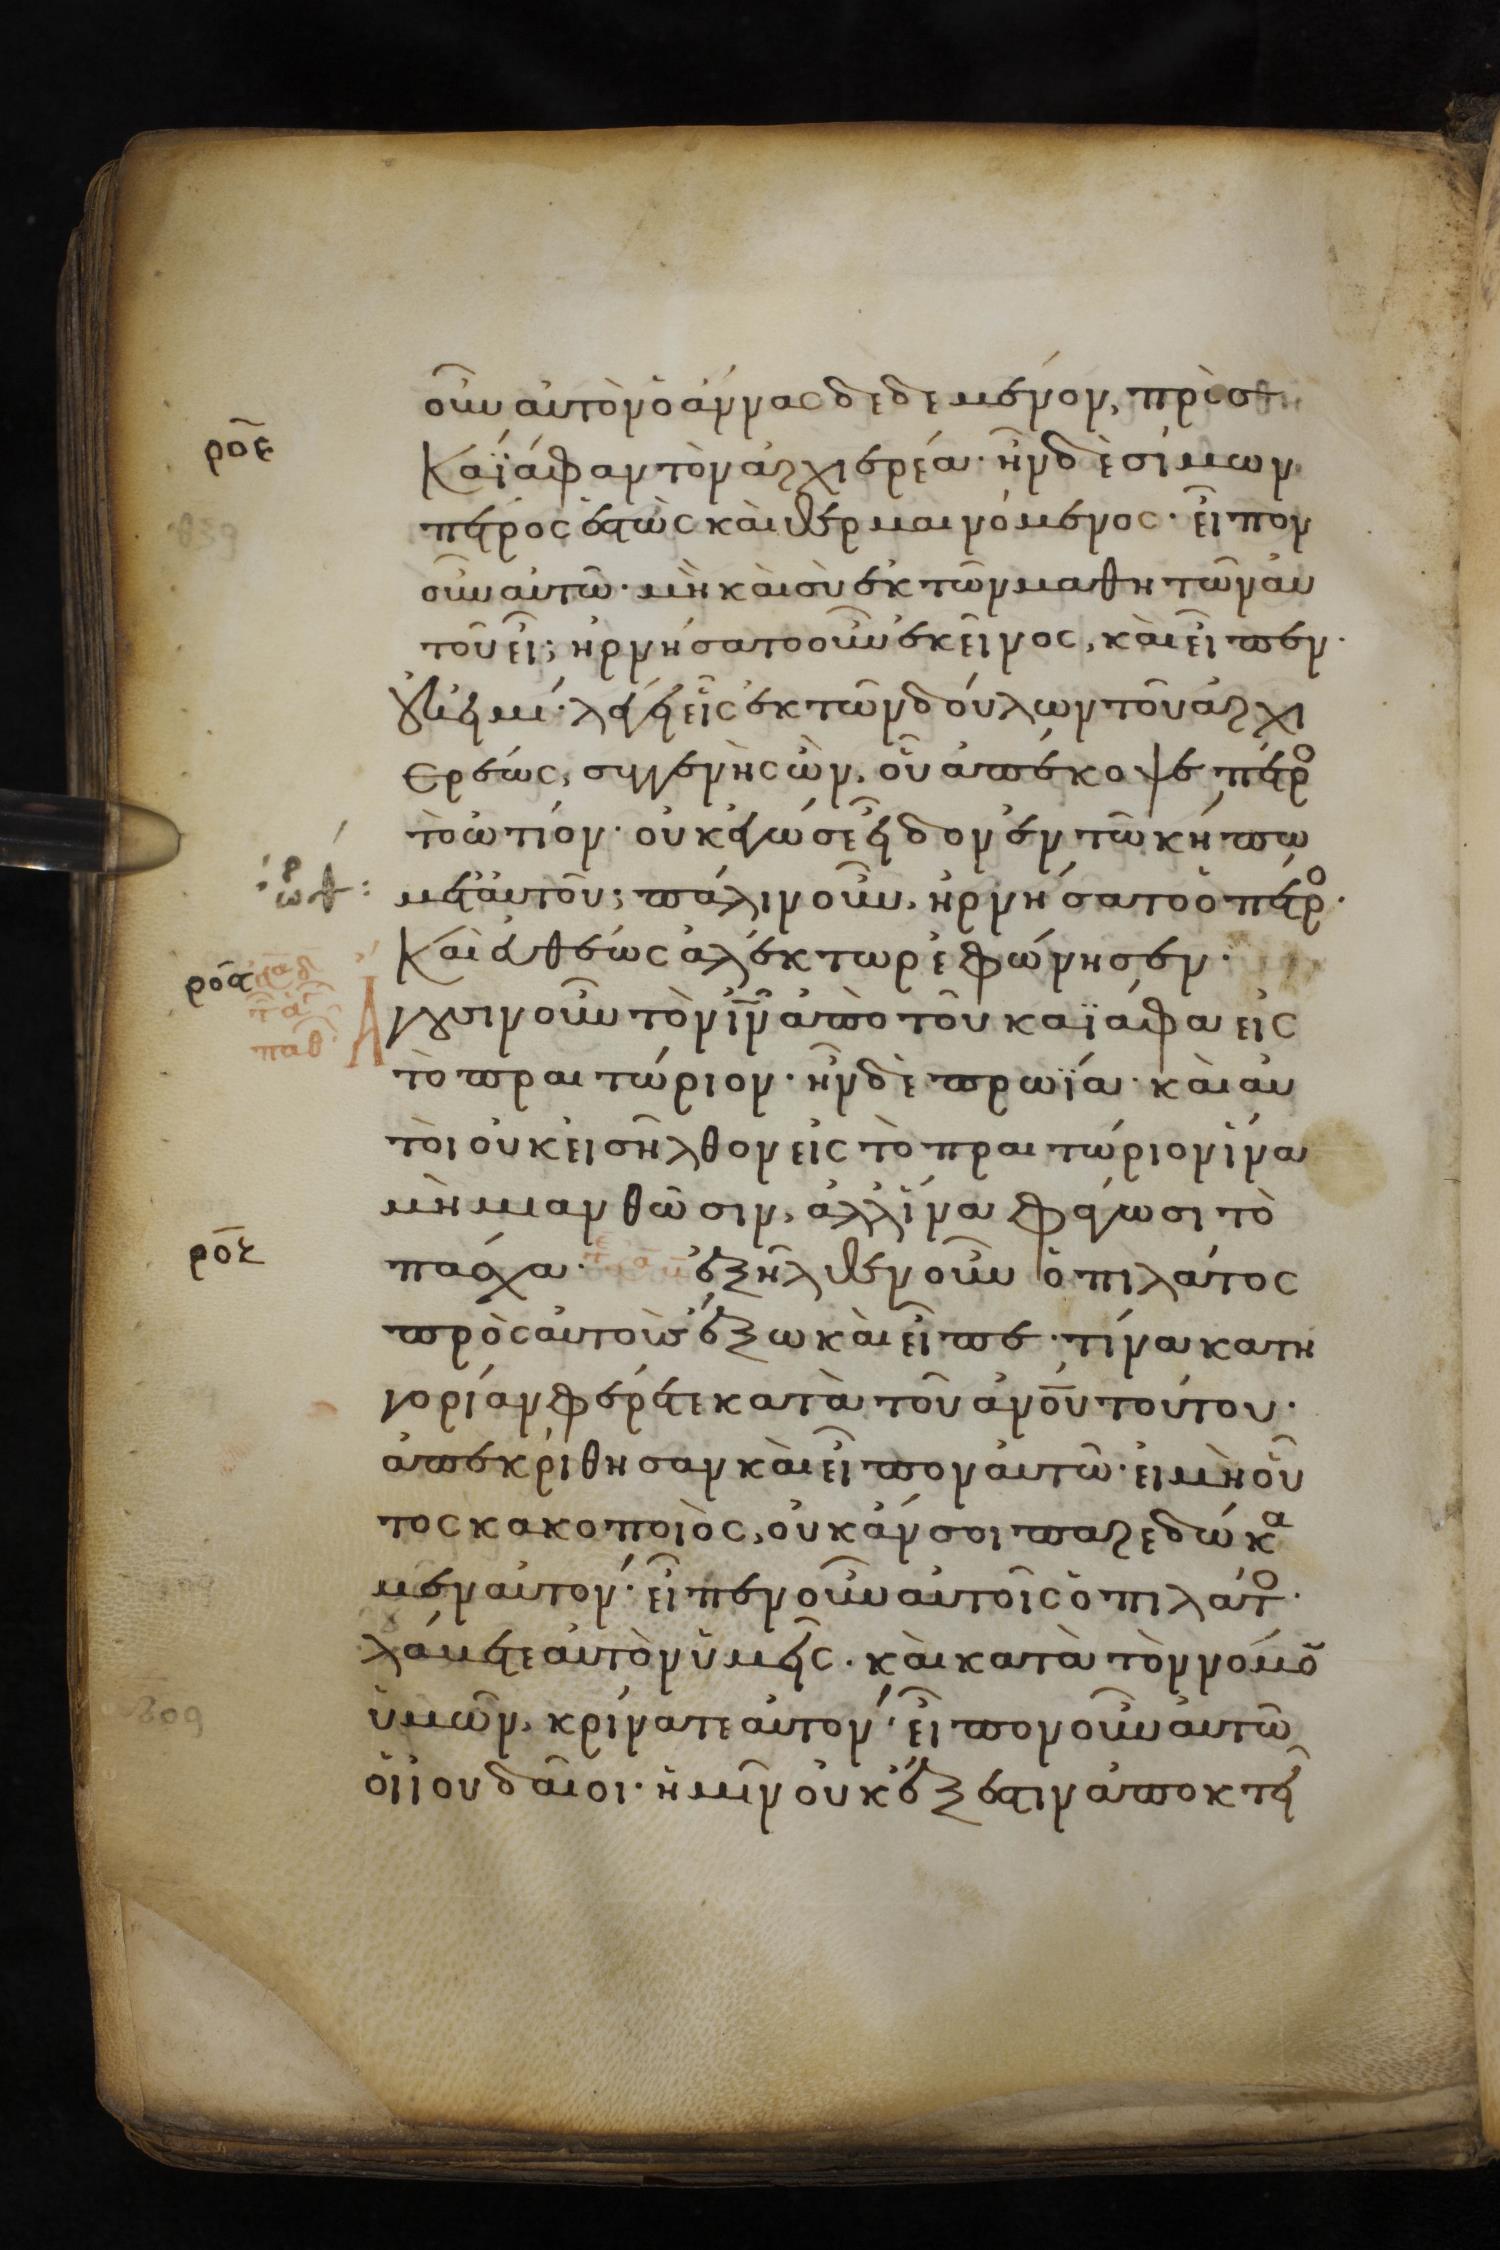 οὖν αὐτὸν ὁ ἄννας δεδεμένον, πρὸς
ροε
Καϊάφαν τὸν ἀρχιερέα· ἦν δὲ σίμων
πέτρος ἑστὼς καὶ θερμαινόμενος· εἶπον
οὖν αὐτῶ· μὴ καὶ σὺ ἐκ τῶν μαθητῶν αὐ
τοῦ εἶ; ἠρνήσατο οὖν ἐκεῖνος, καὶ εἶπεν·
οὐκ εἰμί· λέγει εἷς ἐκ τῶν δούλων τοῦ ἀρχι
ερέως, συγγενὴς ὢν, οὗ ἀπέκοψε πέτρο
τὸ ὠτίον· οὐκ ἐγώ σε εἶδον ἐν τῶ κήπω
μετ' αὐτοῦ; πάλιν οὖν, ἠρνήσατο ὁ πέτρο·
Καὶ εὐθέως ἀλέκτωρ ἐφώνησεν·
ἄγουσιν οὖν τὸν ιν ἀπὸ τοῦ καϊάφα εἰς
τὸ πραιτώριον· ἦν δὲ πρωΐα· καὶ αὐ
τοὶ οὐκ εἰσῆλθον εἰς τὸ πραιτώριον ἵνα
μὴ μιανθῶσιν, ἀλλ' ἵνα φάγωσι τὸ
πάσχα· ἐξῆλθεν οὖν ὁ πιλάτος
πρὸς αὐτοὺς ἔξω καὶ εἶπε· τίνα κατη
γορίαν φέρετε κατὰ τοῦ ἀνου τούτου·
ἀπεκρίθησαν καὶ εἶπον αὐτῶ· εἰ μὴ οὗ
τος κακοποιὸς, οὐκ ἄν σοι παρεδώκα
μεν αὐτόν· εἶπεν οὖν αὐτοῖς ὁ πιλάτο·
λάβετε αὐτὸν ὑμεῖς· καὶ κατὰ τὸν νόμο
ὑμῶν, κρίνατε αὐτόν· εἶπον οὖν αὐτῶ
οἱ ἰουδαῖοι· ἡμῖν οὐκ ἔξεστιν ἀποκτεῖ